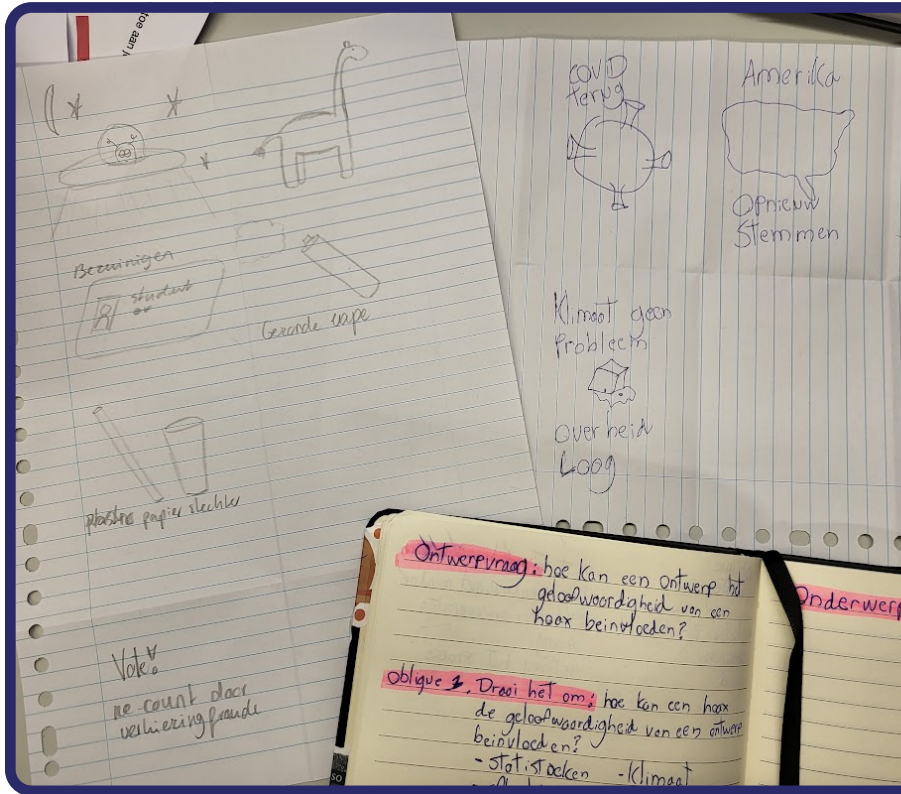 toe aan
Bezuinigen
student
ov
Gezonde vape
papier slechter
Vote!
re-count door
verkiezingfraude
COVID
terug
Amerika
Opnieuw
Stemmen
Klimaat geen
Probleem
overheid
Loog
Ontwerpvraag: hoe kan een ontwerp ht
geloofwoordigheid van een
hoax beinvloeden?
oblique 1. Draai het om: hoe kan een hoax
de geloofwoordigheid van een ontwerp
beinvloeden?
- statistieken - Klimaat
Onderwerp